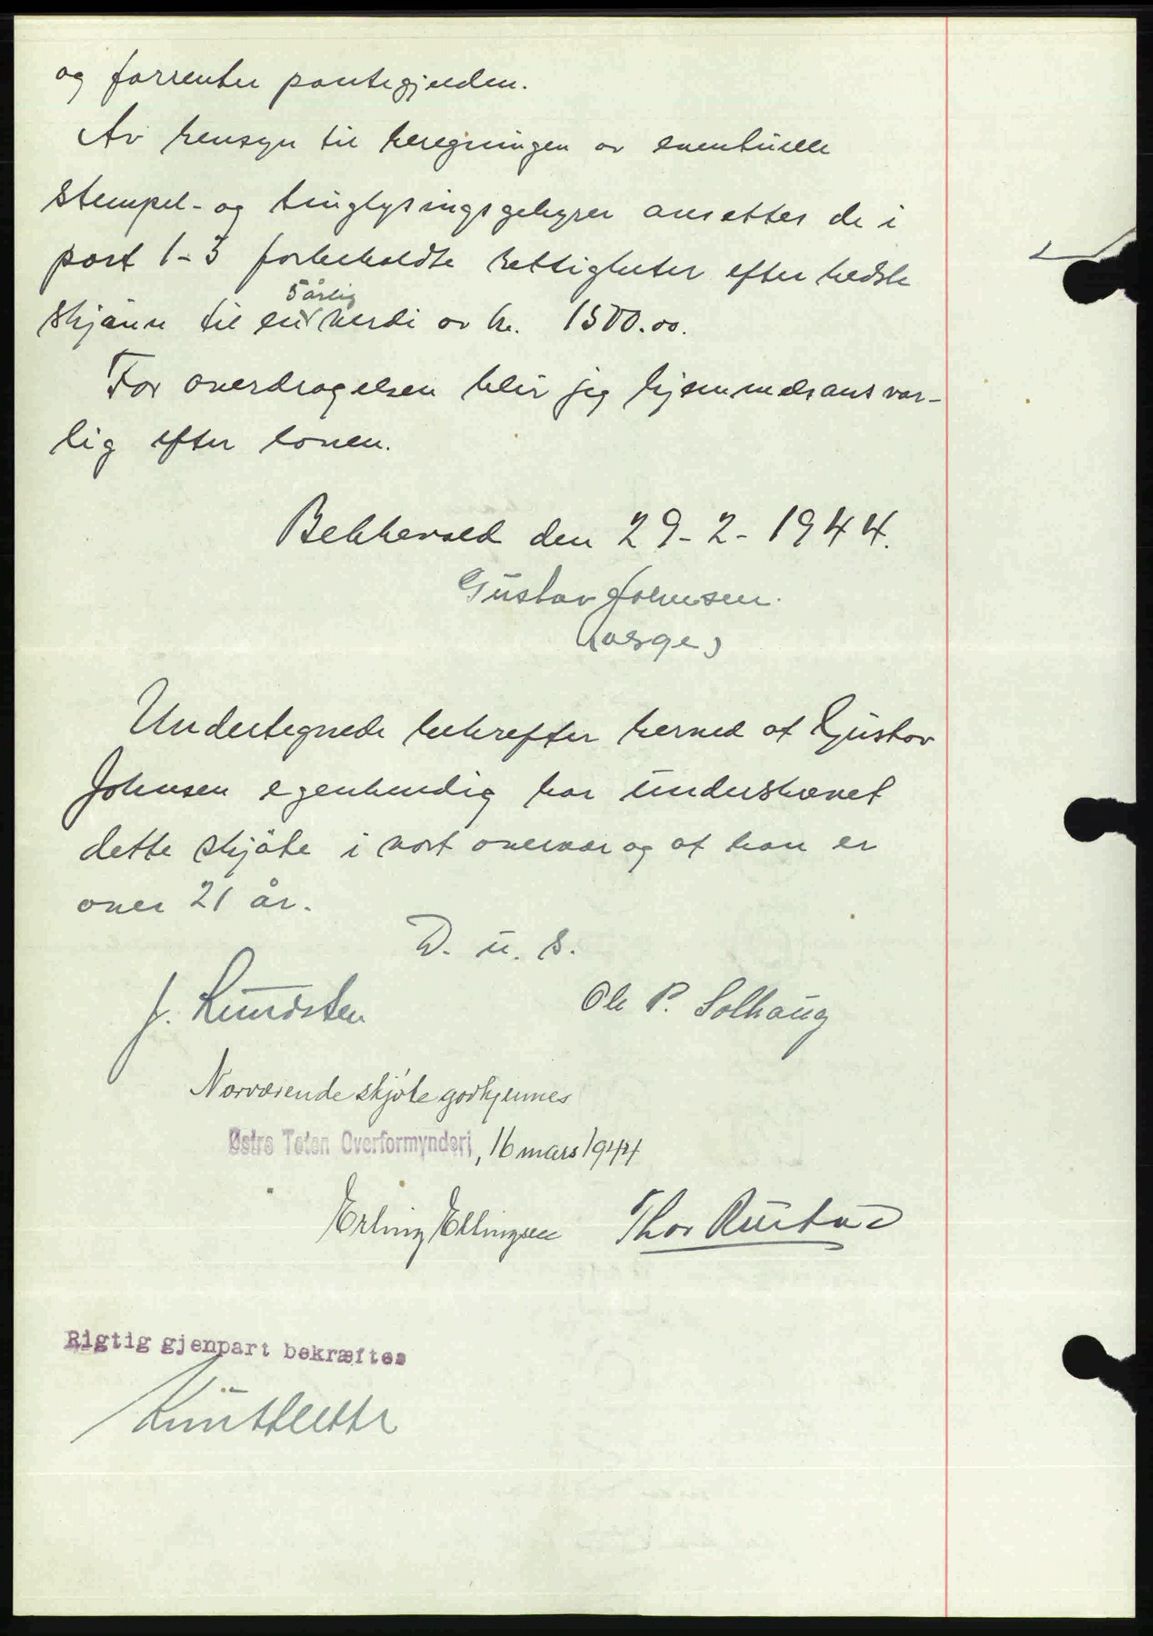 og forrenter pantegjelden.
Av hensyn til beregningen av eventuelle
stempel- og tinglysingsgebyrer ansettes de i
post 1-3 forbeholdte rettigheter efter bedste
5 årlig
skjønn til en verdi av kr. 1500.00.
For overdragelsen blir jeg hjemmelsansvar-
lig efter loven.
den 29-2-1944.
Gustav Johnsen.
(verge)
Undertegnede bekrefter herved at Gustav
Johnsen egenhendig har underskrevet
dette skjøte i vort overvær og at han er
over 21 år.
D. u. s.
J. Lundsten
Ole P. Solhaug
Nærværende skjøte godkjennes
Østre Toten Overformynderi, 16 mars 1944
Erling Ellingsen Thor Rustad
Rigtig gjenpart bekræftes